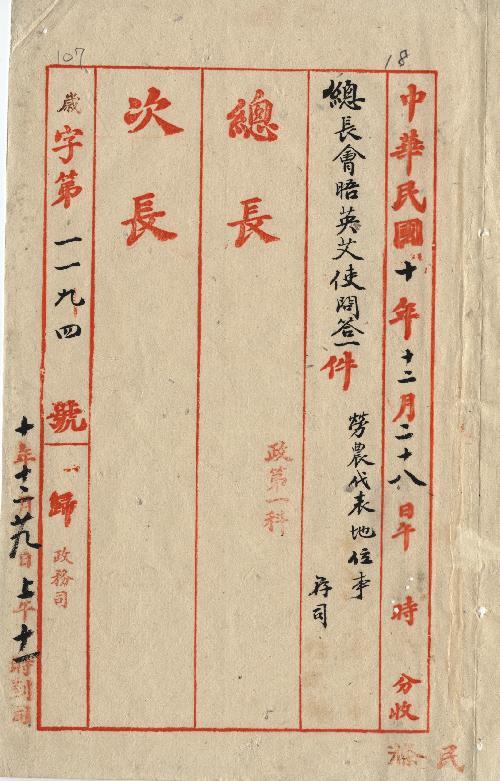 18
107
中華民國十年十二月二十八日午 時 分收
總長會晤英艾使問答一件
勞農代表地位事
存司
總長
政第一科
次長
歲字第一一九四號
歸
政務司
十年十二月廿九日上午十一時到司